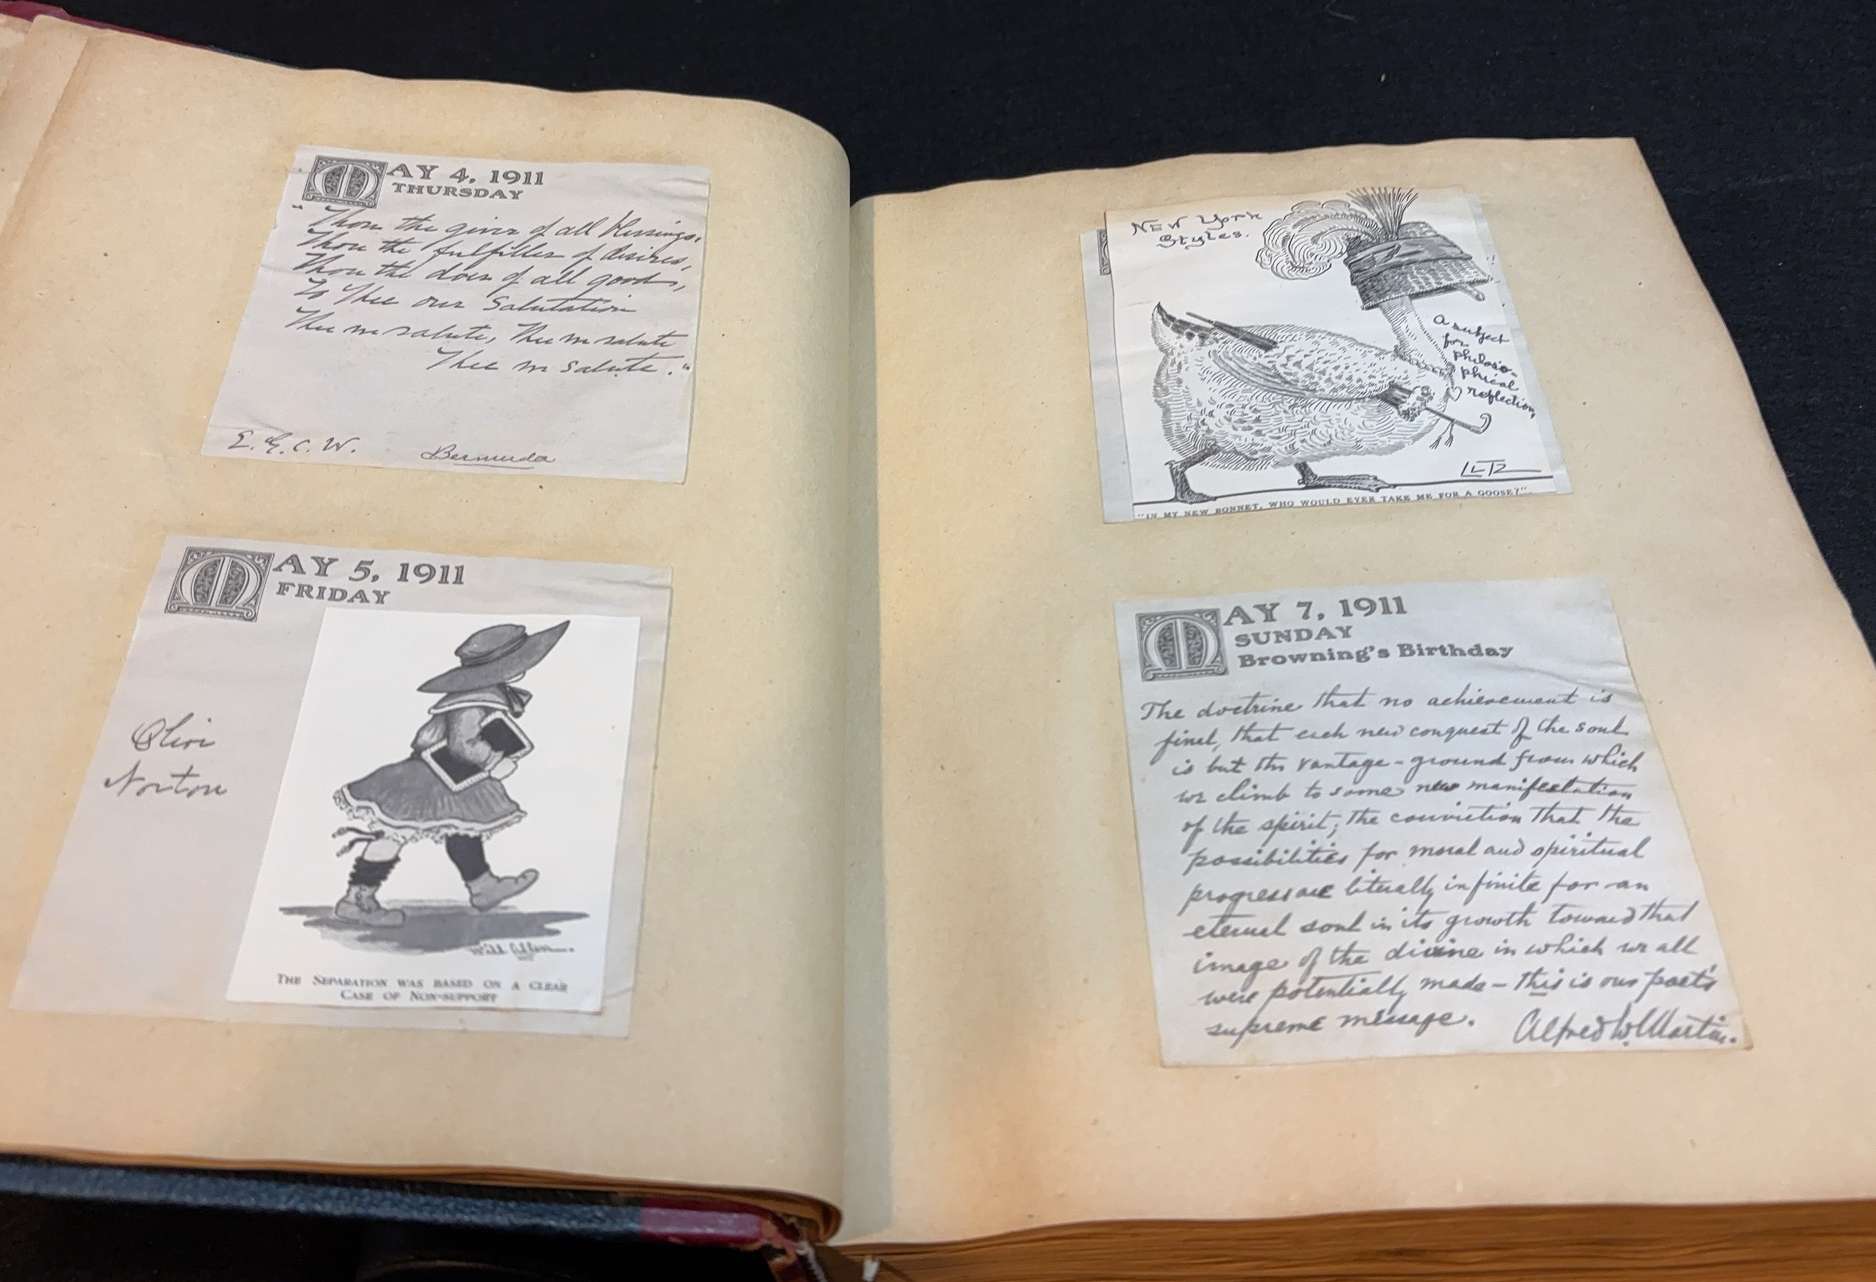 MAY 4, 1911
THURSDAY
"Thou the giver of all blessings,
Thou the fulfiller of desires,
Thou the doer of all good,
To Thee our Salutation
Thee we salute, Thee we salute
Thee we salute."
E. G. C. W. Bermuda
MAY 5, 1911
FRIDAY
Norton
THE SEPARATION WAS BASED ON A CLEAR
CASE OF NON-SUPPORT
NEW York
Styles.
A subject
for
philoso-
phical
reflection,
"IN MY NEW BONNET, WHO WOULD EVER TAKE ME FOR A GOOSE?"
MAY 7, 1911
SUNDAY
Browning's Birthday
The doctrine that no achievement is
final, that each new conquest of the soul
is but the vantage-ground from which
we climb to some new manifestation
of the spirit; the conviction that the
possibilities for moral and spiritual
progress are literally infinite for an
eternal soul in its growth toward that
image of the divine in which we all
were potentially made – this is our poet's
supreme message. Alfred W. Martin.